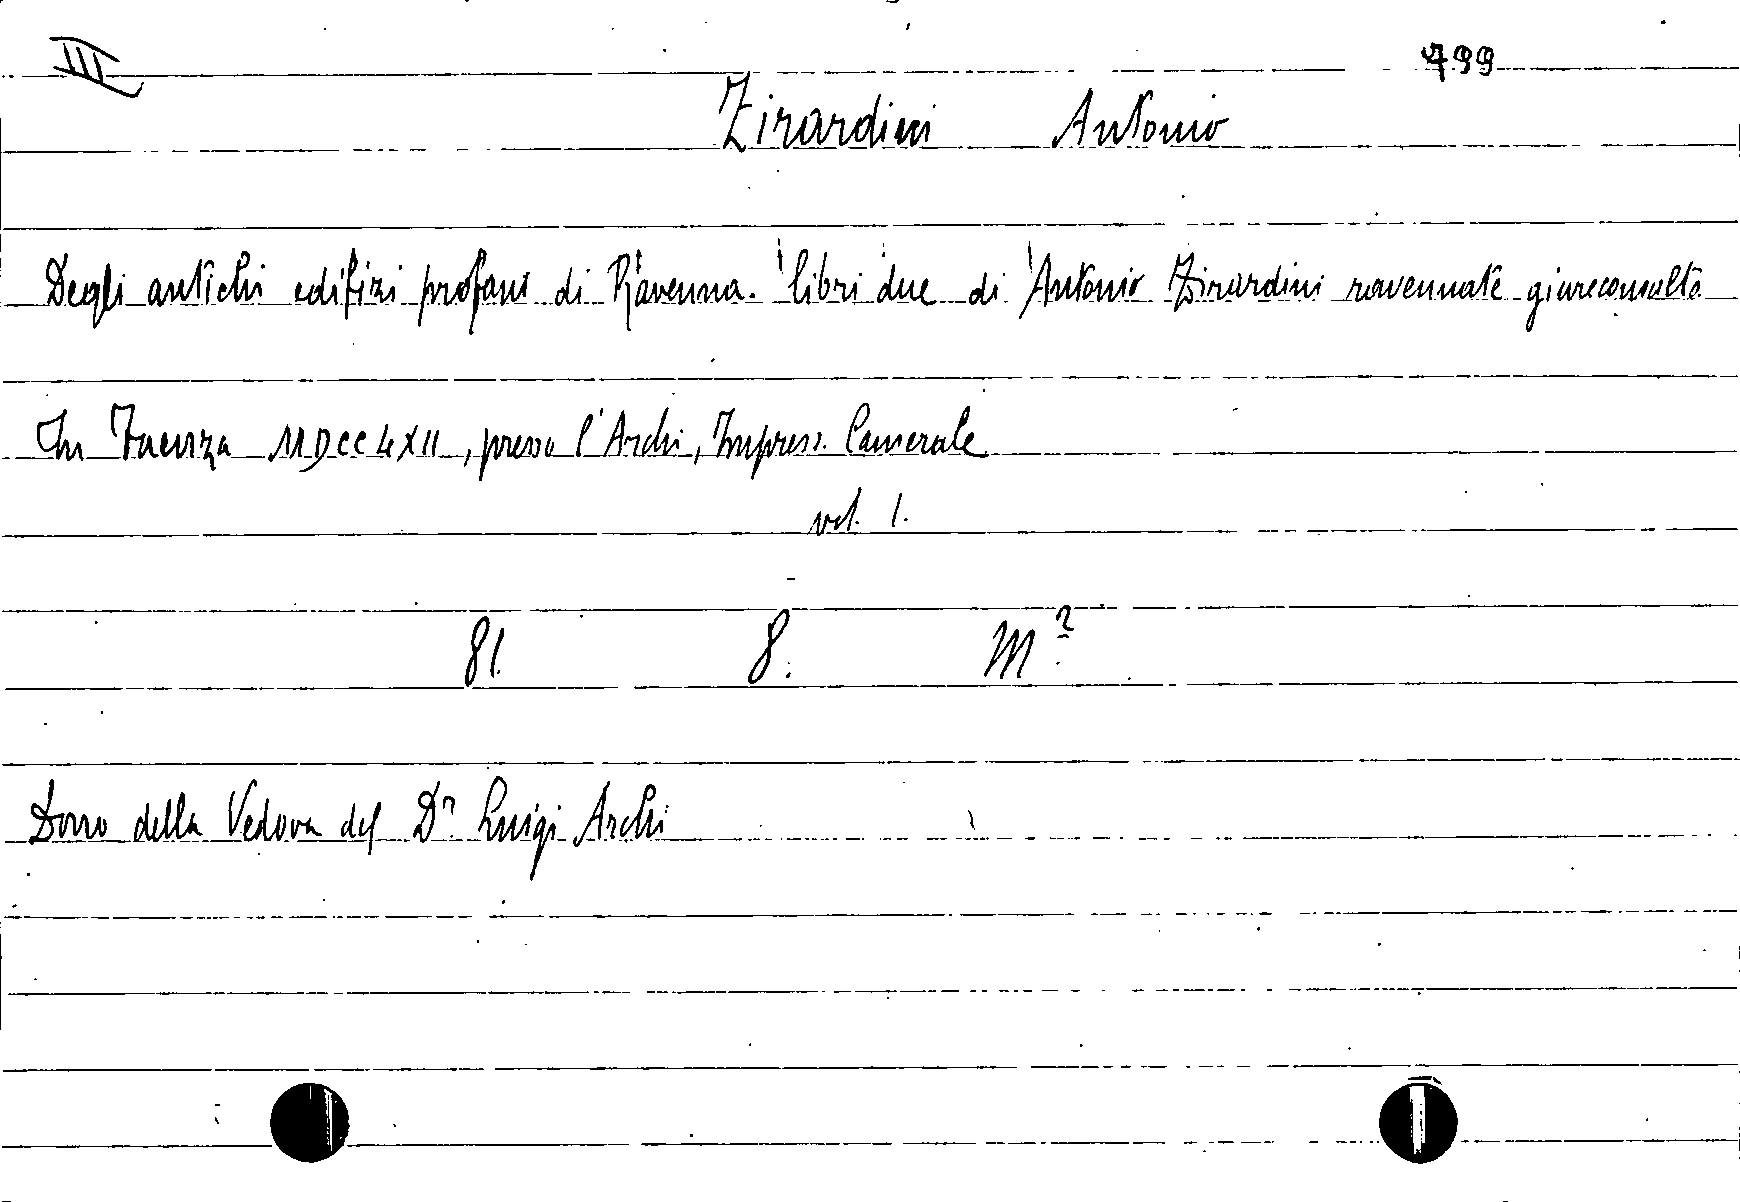 III
799
Zirardini Antonio
Degli antichi edifizi profani di Ravenna. libri due di Antonio Zirardini ravennate giureconsulto
In Faenza MDCCLXII, presso l'Archi, Impress. Camerale
vol. 1.
81. 8. M.2
Dono della Vedova del Dr. Luigi Archi